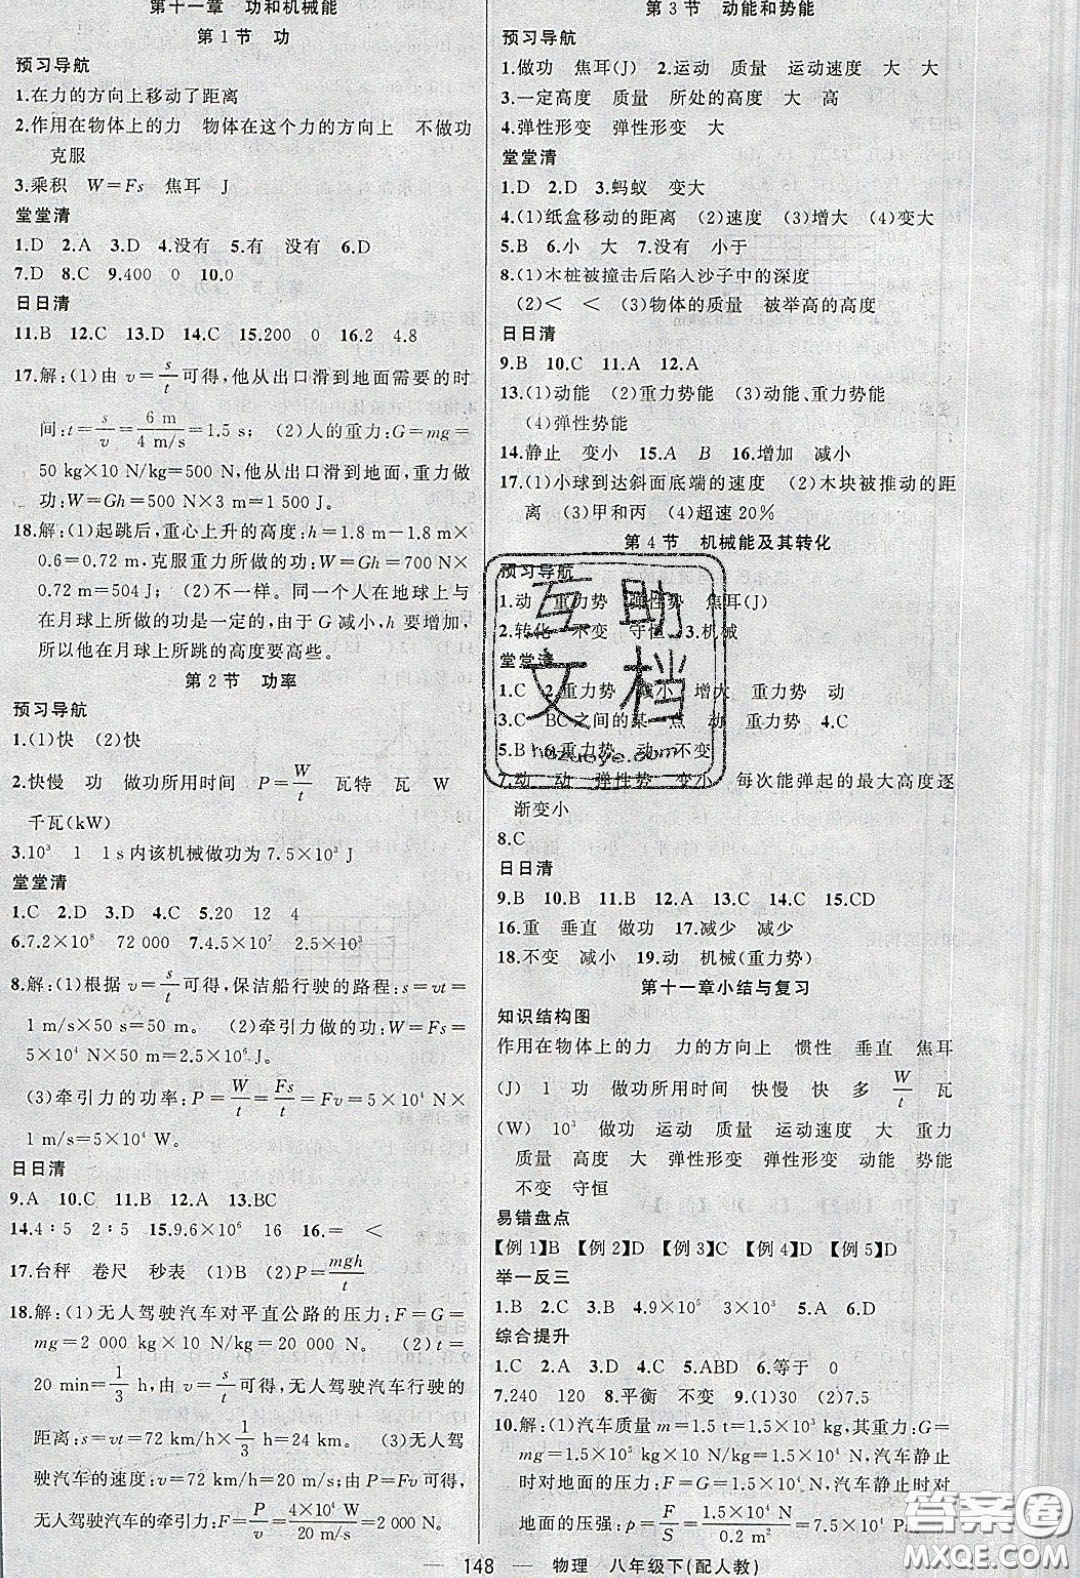 第十一章 功和机械能
第1节 功
预习导航
1.在力的方向上移动了距离
2.作用在物体上的力 物体在这个力的方向上 不做功
克服
3.乘积 W=Fs 焦耳 J
堂堂清
1.D 2.A 3.D 4.没有 5.有 没有 6.D
7.D 8.C 9.400 0 10.0
日日清
11.B 12.C 13.D 14.C 15.200 0 16.2 4.8
17.解:(1)由v=s/t可得,他从出口滑到地面需要的时
间:t=s/v=6 m/4 m/s=1.5 s; (2)人的重力:G=mg=
50 kg×10 N/kg=500 N,他从出口滑到地面,重力做
功:W=Gh=500 N×3 m=1 500 J。
18.解:(1)起跳后,重心上升的高度:h=1.8 m-1.8 m×
0.6=0.72 m,克服重力所做的功:W=Gh=700 N×
0.72 m=504 J; (2)不一样。同一个人在地球上与
在月球上所做的功是一定的,由于G减小,h要增加,
所以他在月球上所跳的高度要高些。
第2节 功率
预习导航
1.(1)快 (2)快
2.快慢 功 做功所用时间 P=W/t 瓦特 瓦 W
千瓦(kW)
3.10³ 1 1 s内该机械做功为7.5×10³ J
堂堂清
1.C 2.D 3.D 4.C 5.20 12 4
6.7.2×10⁸ 72 000 7.4.5×10⁷ 2.5×10³
8.解:(1)根据v=s/t可得,保洁船行驶的路程:s=vt=
1 m/s×50 s=50 m。 (2)牵引力做的功:W=Fs=
5×10⁴ N×50 m=2.5×10⁶ J。
(3)牵引力的功率:P=W/t=Fs/t=Fv=5×10⁴ N×
1 m/s=5×10⁴ W。
日日清
9.A 10.C 11.B 12.A 13.BC
14.4∶5 2∶5 15.9.6×10⁶ 16 16.= <
17.台秤 卷尺 秒表 (1)B (2)P=mgh/t
18.解:(1)无人驾驶汽车对平直公路的压力:F=G=
mg=2 000 kg×10 N/kg=20 000 N。 (2)t=
20 min=1/3 h,由v=s/t可得,无人驾驶汽车行驶的
距离:s=vt=72 km/h×1/3 h=24 km。 (3)无人驾
驶汽车的速度:v=72 km/h=20 m/s,由P=Fv可得,
无人驾驶汽车的牵引力:F=P/v=4×10⁴ W/20 m/s=2 000 N。
第3节 动能和势能
预习导航
1.做功 焦耳(J) 2.运动 质量 运动速度 大 大
3.一定高度 质量 所处的高度 大 高
4.弹性形变 弹性形变 大
堂堂清
1.D 2.D 3.蚂蚁 变大
4.(1)纸盒移动的距离 (2)速度 (3)增大 (4)变大
5.B 6.小 大 7.没有 小于
8.(1)木桩被撞击后陷入沙子中的深度
(2)< < (3)物体的质量 被举高的高度
日日清
9.B 10.C 11.A 12.A
13.(1)动能 (2)重力势能 (3)动能、重力势能
(4)弹性势能
14.静止 变小 15.A B 16.增加 减小
17.(1)小球到达斜面底端的速度 (2)木块被推动的距
离 (3)甲和丙 (4)超速20%
第4节 机械能及其转化
预习导航
1.动 重力势 弹性势 焦耳(J)
2.转化 不变 守恒 3.机械
堂堂清
1.C 2.重力势 减小 增大 重力势 动
3.C BC之间的某一点 动 重力势 4.C
5.B 6.重力势 动 不变
7.动 动 弹性势 变小 每次能弹起的最大高度逐
渐变小
8.C
日日清
9.B 10.B 11.B 12.B 13.A 14.C 15.CD
16.重 垂直 做功 17.减少 减少
18.不变 减小 19.动 机械(重力势)
第十一章小结与复习
知识结构图
作用在物体上的力 力的方向上 惯性 垂直 焦耳
(J) 1 功 做功所用时间 快慢 快 多 W/t 瓦
(W) 10³ 做功 运动 质量 运动速度 大 重力
质量 高度 大 弹性形变 弹性形变 动能 势能
不变 守恒
易错盘点
【例1】B 【例2】D 【例3】C 【例4】D 【例5】D
举一反三
1.B 2.C 3.B 4.9×10⁵ 3×10³ 5.A 6.D
综合提升
1.C 2.A 3.D 4.C 5.ABD 6.等于 0
7.240 120 8.平衡 不变 9.(1)30 (2)7.5
10.解:(1)汽车质量m=1.5 t=1.5×10³ kg,其重力:G=
mg=1.5×10³ kg×10 N/kg=1.5×10⁴ N,汽车静止
时对地面的压力:F=G=1.5×10⁴ N,汽车静止时对
地面的压强:p=F/S=1.5×10⁴ N/0.2 m²=7.5×10⁴ Pa。
互助
文档
hezuoye.com
答案圈
MXQE.COM
148 物理 八年级下(配人教)